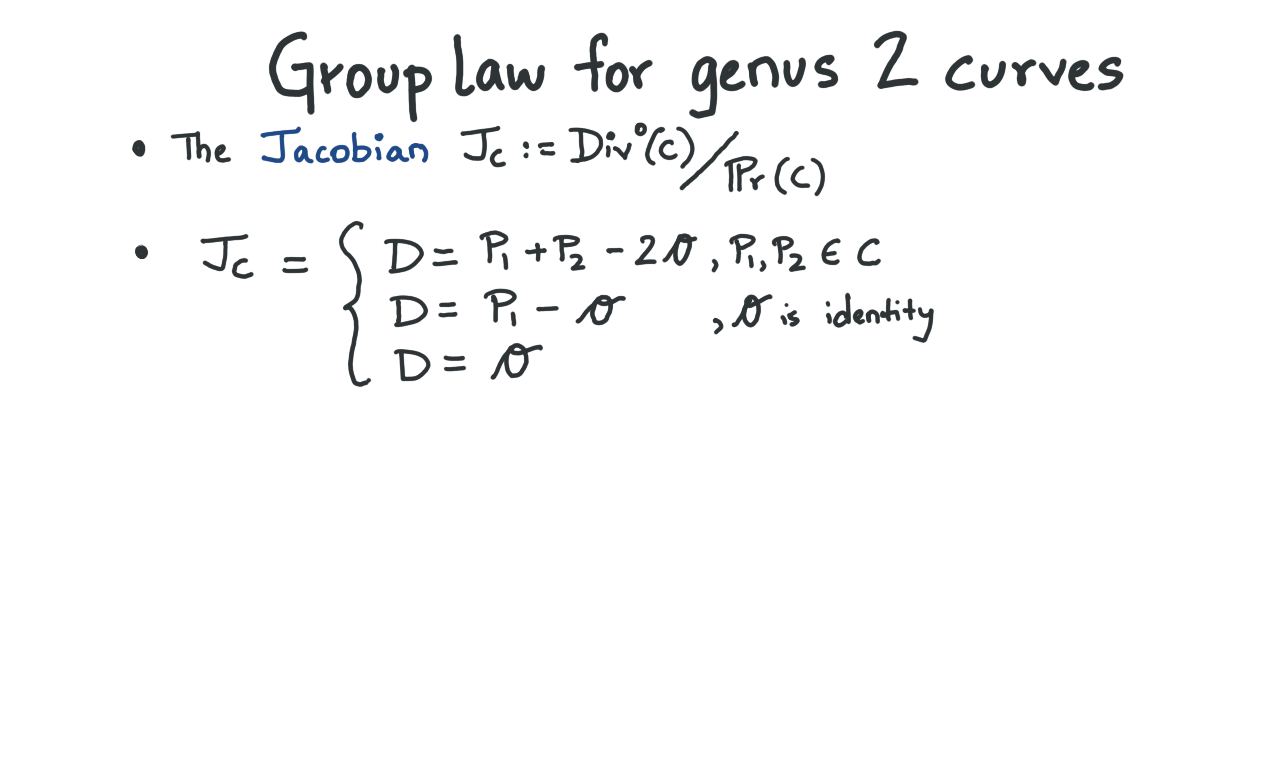 Group law for genus 2 curves
• The Jacobian J_C := Div⁰(C)/Pr(C)
• J_C = { D = P₁ + P₂ - 2𝒪, P₁, P₂ ∈ C
D = P₁ - 𝒪 , 𝒪 is identity
D = 𝒪